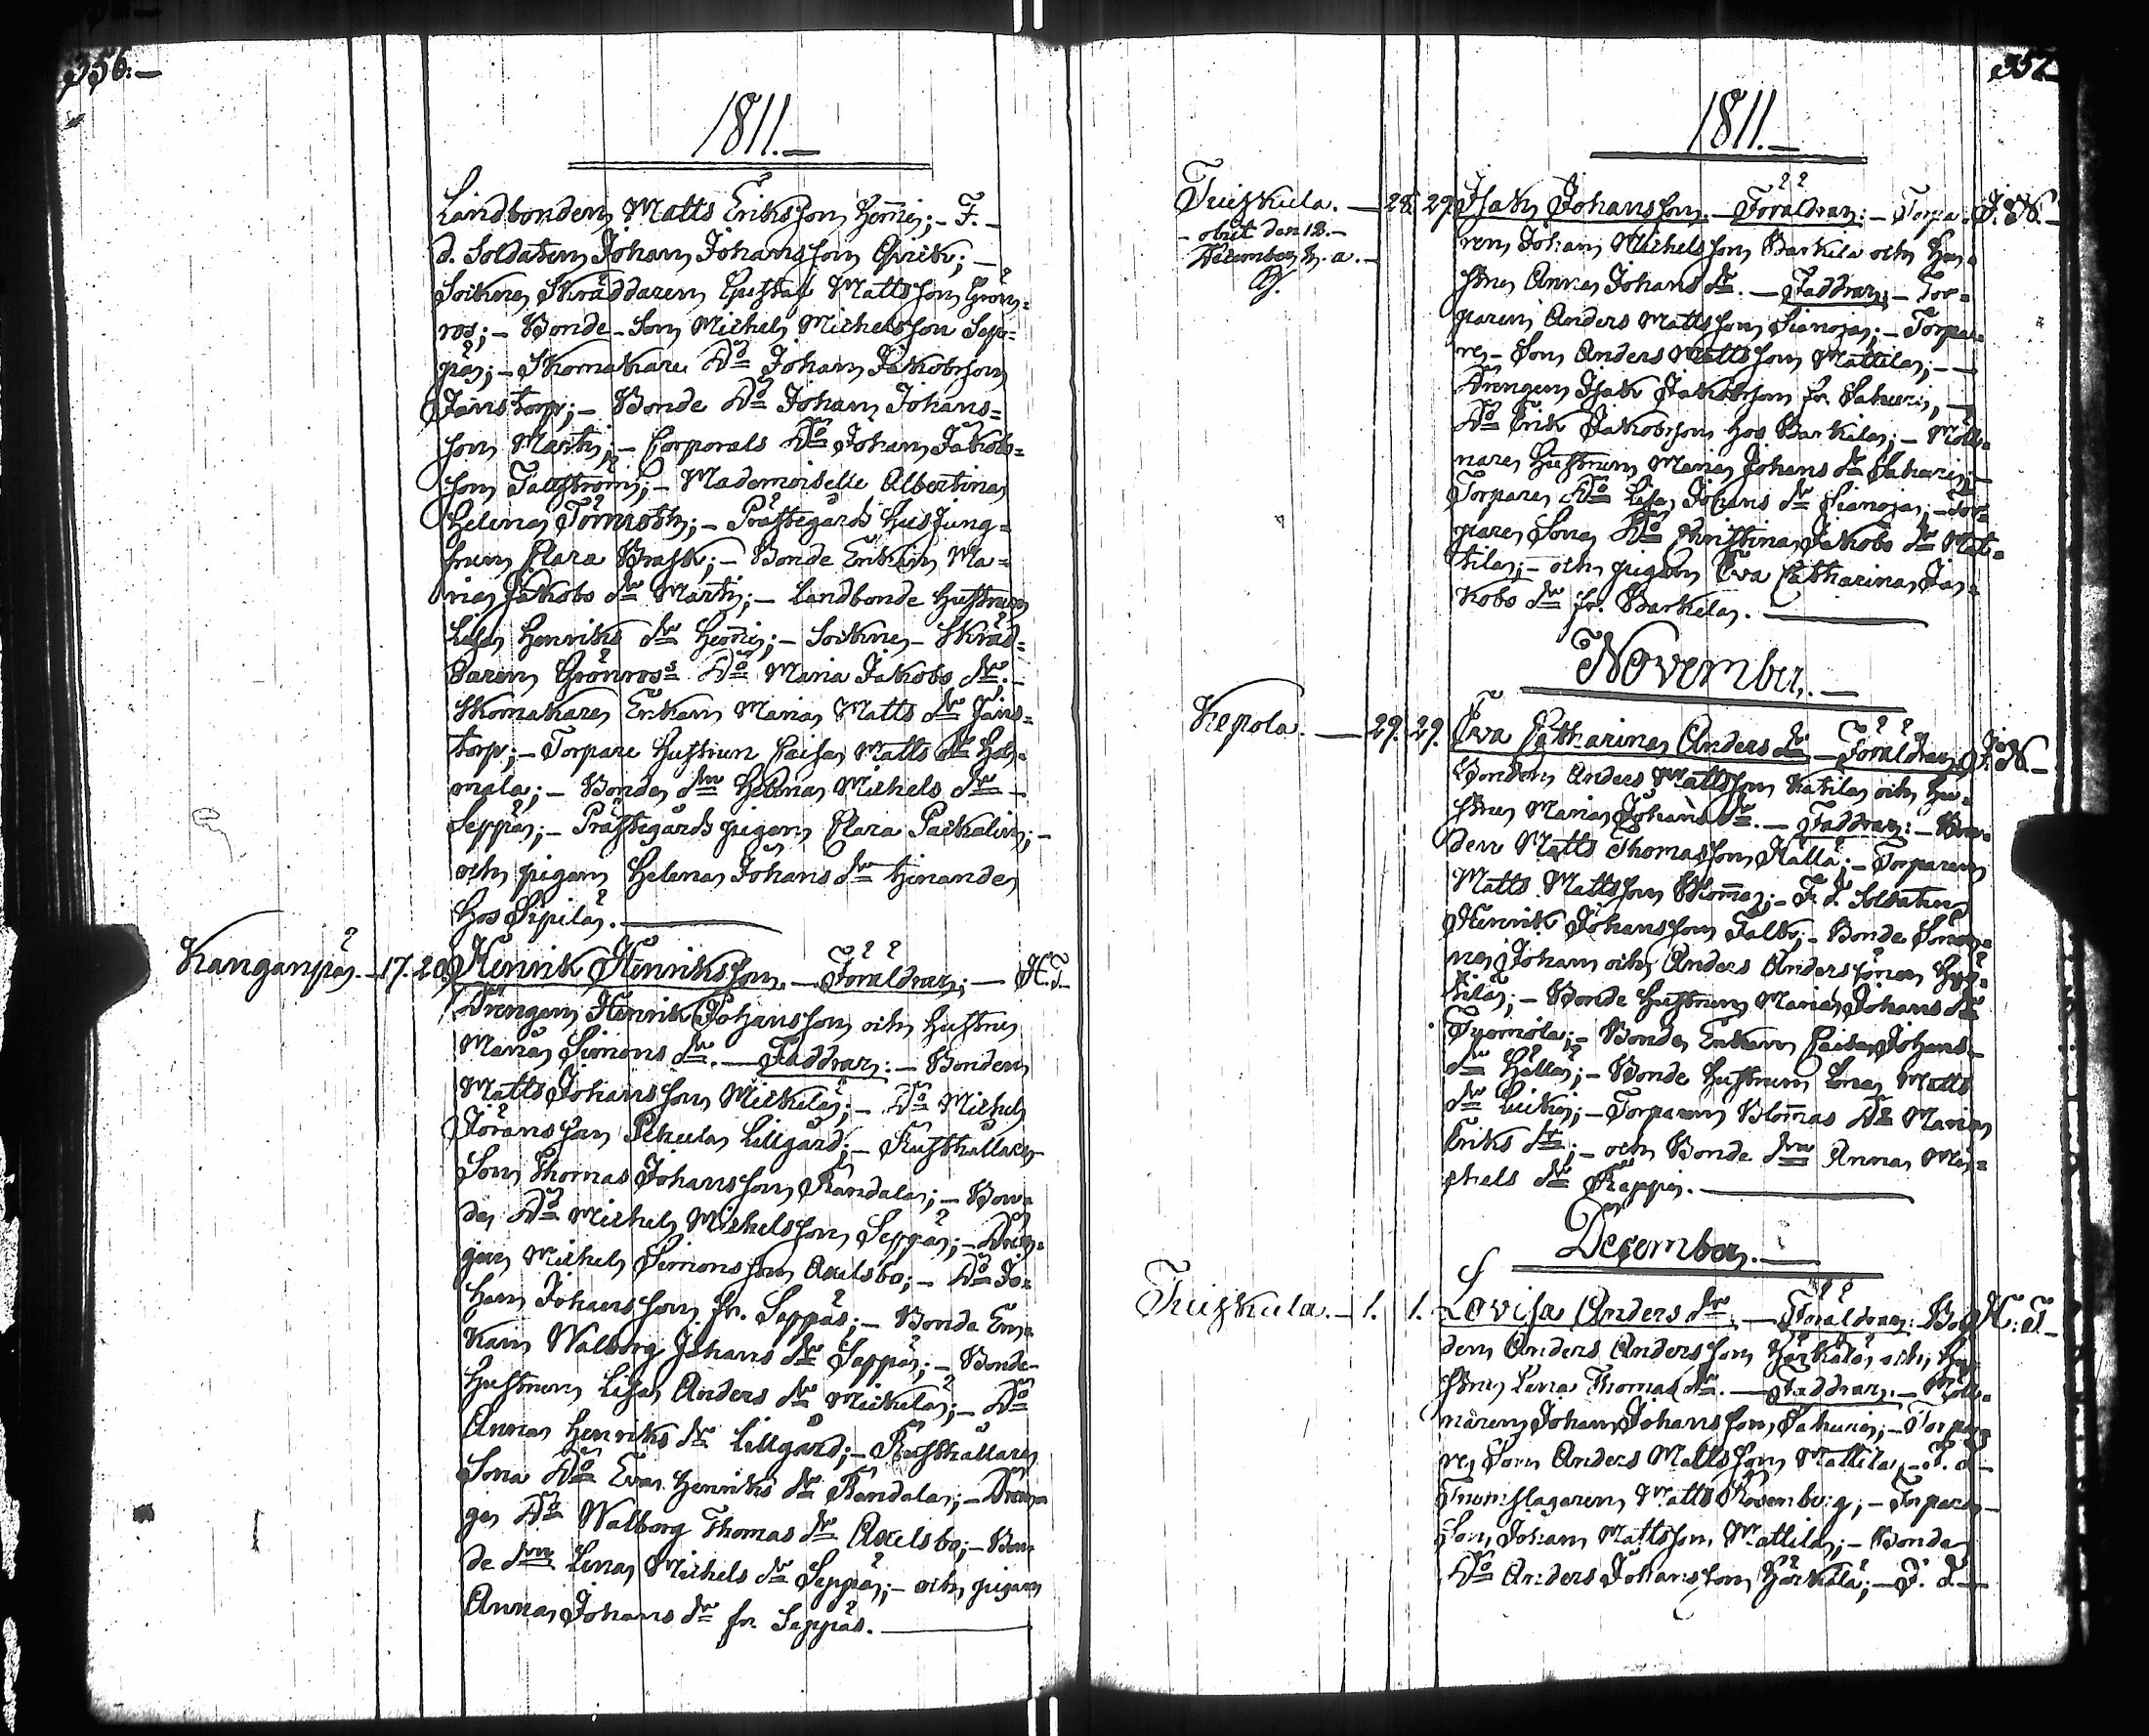 356.—
1811.—
Landbonden Matts Eriksson Hemmi; — F.—
d. Soldaten Johan Johansson Qvick; —
Sockne Skräddaren Gustaf Mattsson Grön=
ros; — Bonde Son Michel Michelsson Sep=
pä; — Skomakare D:o Johan Jakobsson
Jänstorp; — Bonde D:o Johan Johans=
son Martti; — Corporals D:o Johan Jakobs=
son Tallström; — Mademoiselle Albertina
Helena Törnroth; — Prästegårds Husjung=
frun Clara Brask; — Bonde Enkan Ma=
ria Jakobs dr Martti; — Landbonde Hustrun
Lisa Henriks dr Hemmi; — Sockne Skräd=
daren Grönros D:o Maria Jakobs dr —
Skomakare Enkan Maria Matts dr Jäns=
torp; — Torpare Hustrun Caisa Matts dr
mala; — Bonde dr Helena Michels dr —
Seppä; — Prästegårds pigan Clara Packalin; —
och pigan Helena Johans dr tjenande
hos Sipilä. —
Kanganpää. — 17. 20. Henrik Henriksson. — Föräldrar: — H. T.
Drängen Henrik Johansson och Hustrun
Maria Simons dr. — Faddrar: — Bonden
Matts Johansson Mickelä; — D:o Michel
Göransson Lillgård; — Rusthållare
Son Thomas Johansson Randala; — Bon=
de D:o Michel Michelsson Seppä; — Drän=
gen Michel Simonsson Axelsbo; — D:o Jo=
han Johansson fr. Seppä; — Bonde En=
kan Walborg Johans dr Seppä; — Bonde
Hustrun Lisa Anders dr Mickelä; — D:o
Anna Henriks dr Lillgård; — Rusthållare
Sona D:o Eva Henriks dr Randala; — Drän=
ge D:o Walborg Thomas dr Axelsbo; — Bon=
de dr Lena Michels dr Seppä; — och pigan
Anna Johans dr fr. Seppä. —
357.
1811.—
Tuiskula. — 28. 29. Isak Johansson. — Föräldrar: — Torpa= J. N.
obiit den 18.—
December h. a.—
ren Johan Michelsson Barkila och Hu=
stru Anna Johans dr. — Faddrar: — Tor=
paren Anders Mattsson Sianoja; — Torpa=
re Son Anders Mattsson Mattila; —
Drängen Isak Jakobsson fr. Sahari; —
D:o Erik Jakobsson hos Barkila; — Möll=
nare Hustrun Maria Johans dr Sahari; —
Torpare D:o Lisa Johans dr Sianoja; — Tor=
pare Sona D:o Christina Jakobs dr Mat=
tila; — och pigan Eva Catharina Ja=
kobs dr fr. Barkila. —
November.—
Kepola. — 29. 29. Eva Catharina Anders dr — Föräldrar: J. N.
Bonden Anders Mattsson Katila och Hu=
stru Maria Johans dr. — Faddrar: — Bon=
den Matts Thomasson Källä; — Torparen
Matts Mattsson Blomma; — F. d. Soldaten
Henrik Johansson Falk; — Bonde Söner=
ne Johan och Anders Anderssöner
tilä; — Bonde Hustrun Maria Johans dr
— Bonde Enkan Caisa Johans
dr Källä; — Bonde Hustrun Lena Matts
dr — Torparens Blommas D:o Maria
Eriks dr; — och Bonde dr Anna Mi=
chels dr Reppi. —
December.—
Tuiskula. — 1. 1. Lovisa Anders dr. — Föräldrar: Bon H. T.
den Anders Andersson Härkälä och Hu=
stru Lena Thomas dr. — Faddrar: — Möll=
naren Johan Johansson Sahari; — Torpa=
re Son Anders Mattsson Mattila; — F. d.
Trumslagaren Matts Rosenberg; — Torpare
Son Johan Mattsson Mattila; — Bonde
D:o Anders Johansson Härkälä; — F. d. —